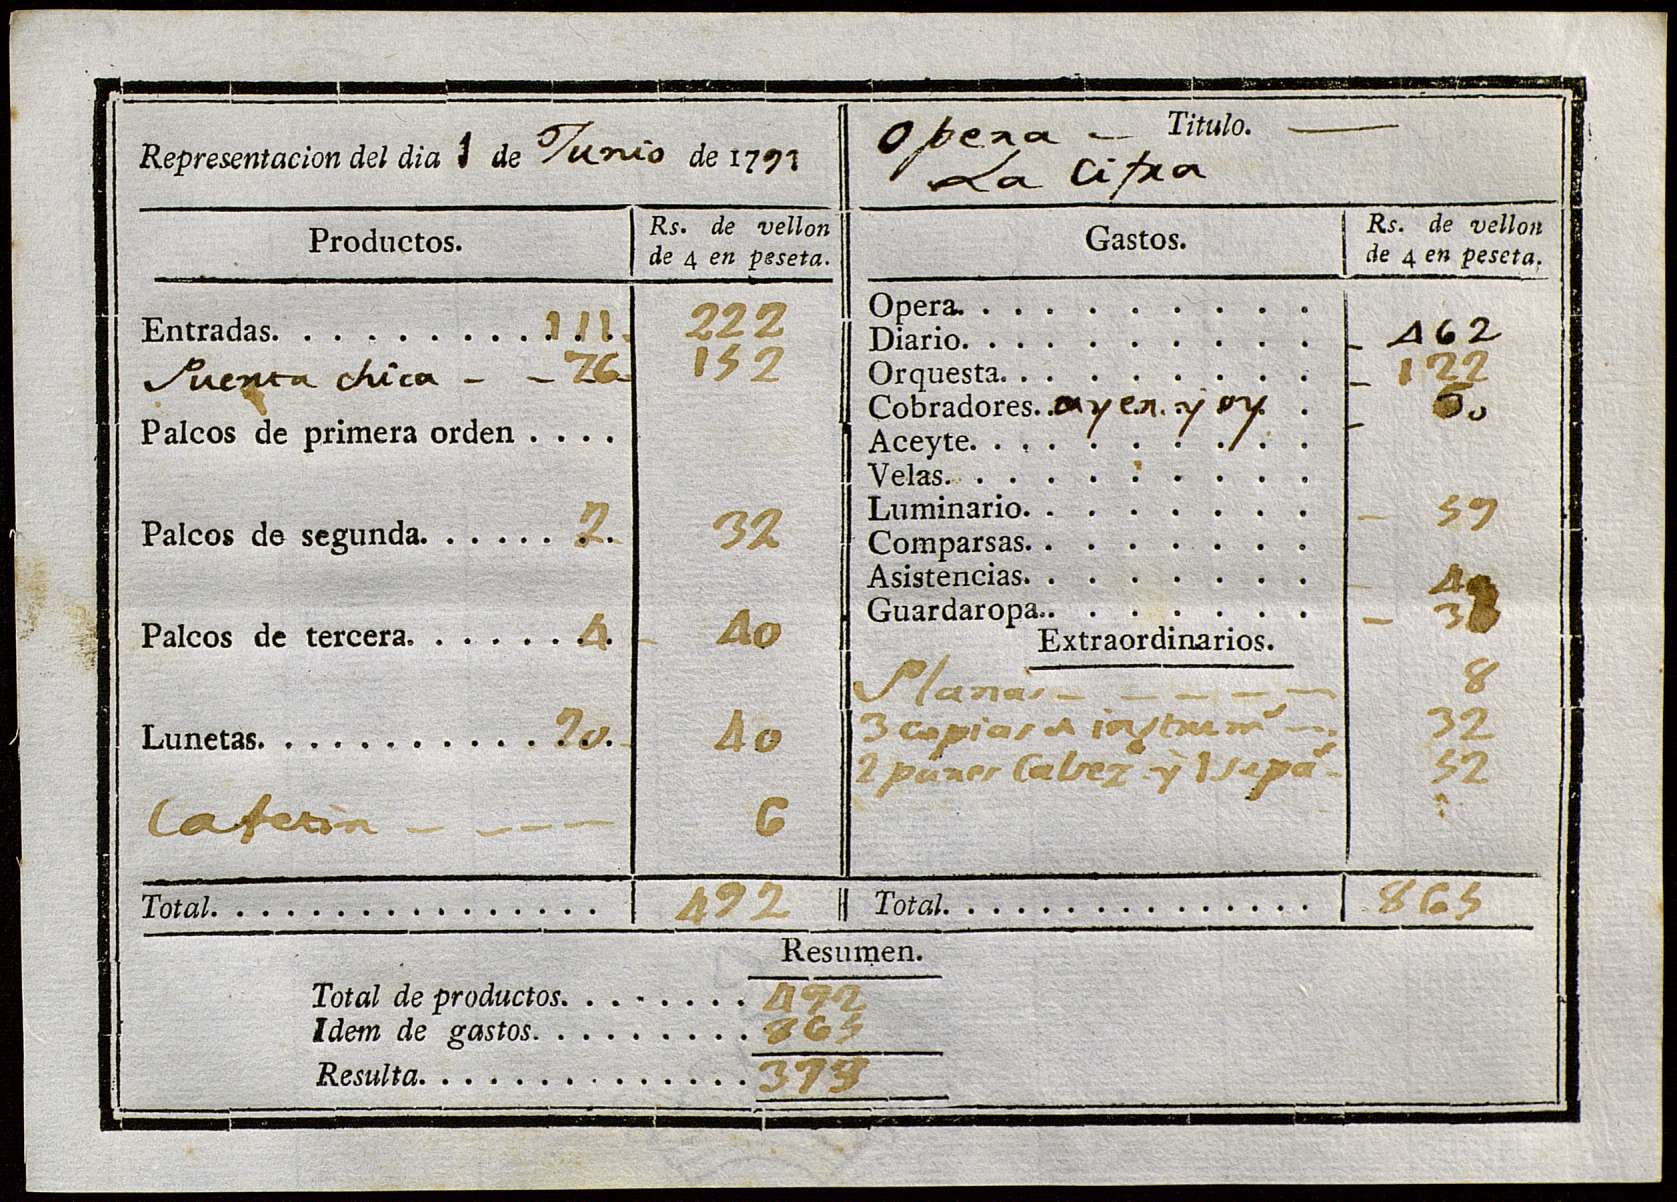 Representacion del dia 1 de Junio de 1791
Opera — Titulo. —
La Cifra
Productos.
Rs. de vellon
de 4 en peseta.
Entradas. 111. 222
Puerta chica - - 76 152
Palcos de primera orden ....
Palcos de segunda. 2. 32
Palcos de tercera. 4 - 40
Lunetas. 20. 40
Cafetin - - - - 6
Total. 492
Gastos.
Rs. de vellon
de 4 en peseta.
Opera.
Diario. - 462
Orquesta. - 122
Cobradores. ayer y oy. - 50
Aceyte.
Velas.
Luminario. - 59
Comparsas.
Asistencias.
Guardaropa.
Extraordinarios.
8
3 copias instrum.s 32
2 52
Total. 865
Resumen.
Total de productos. 492
Idem de gastos. 865
Resulta. 373